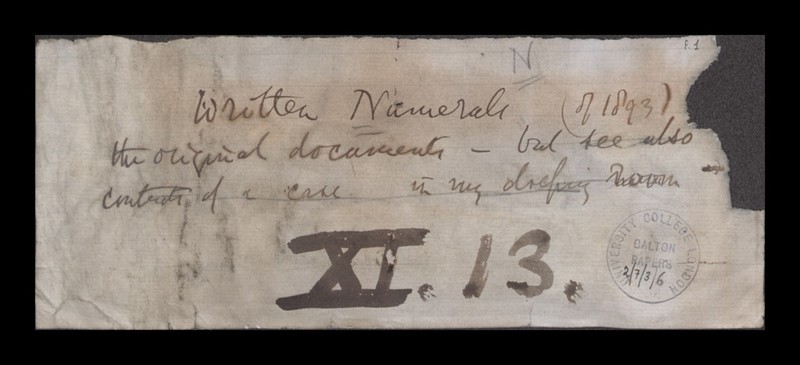 F.1
N
Written Numerals (of 1893)
the original documents – but see also
contents of a case in my dressing room
XI. 13.
UNIVERSITY COLLEGE LONDON
GALTON
PAPERS
2/7/3/6